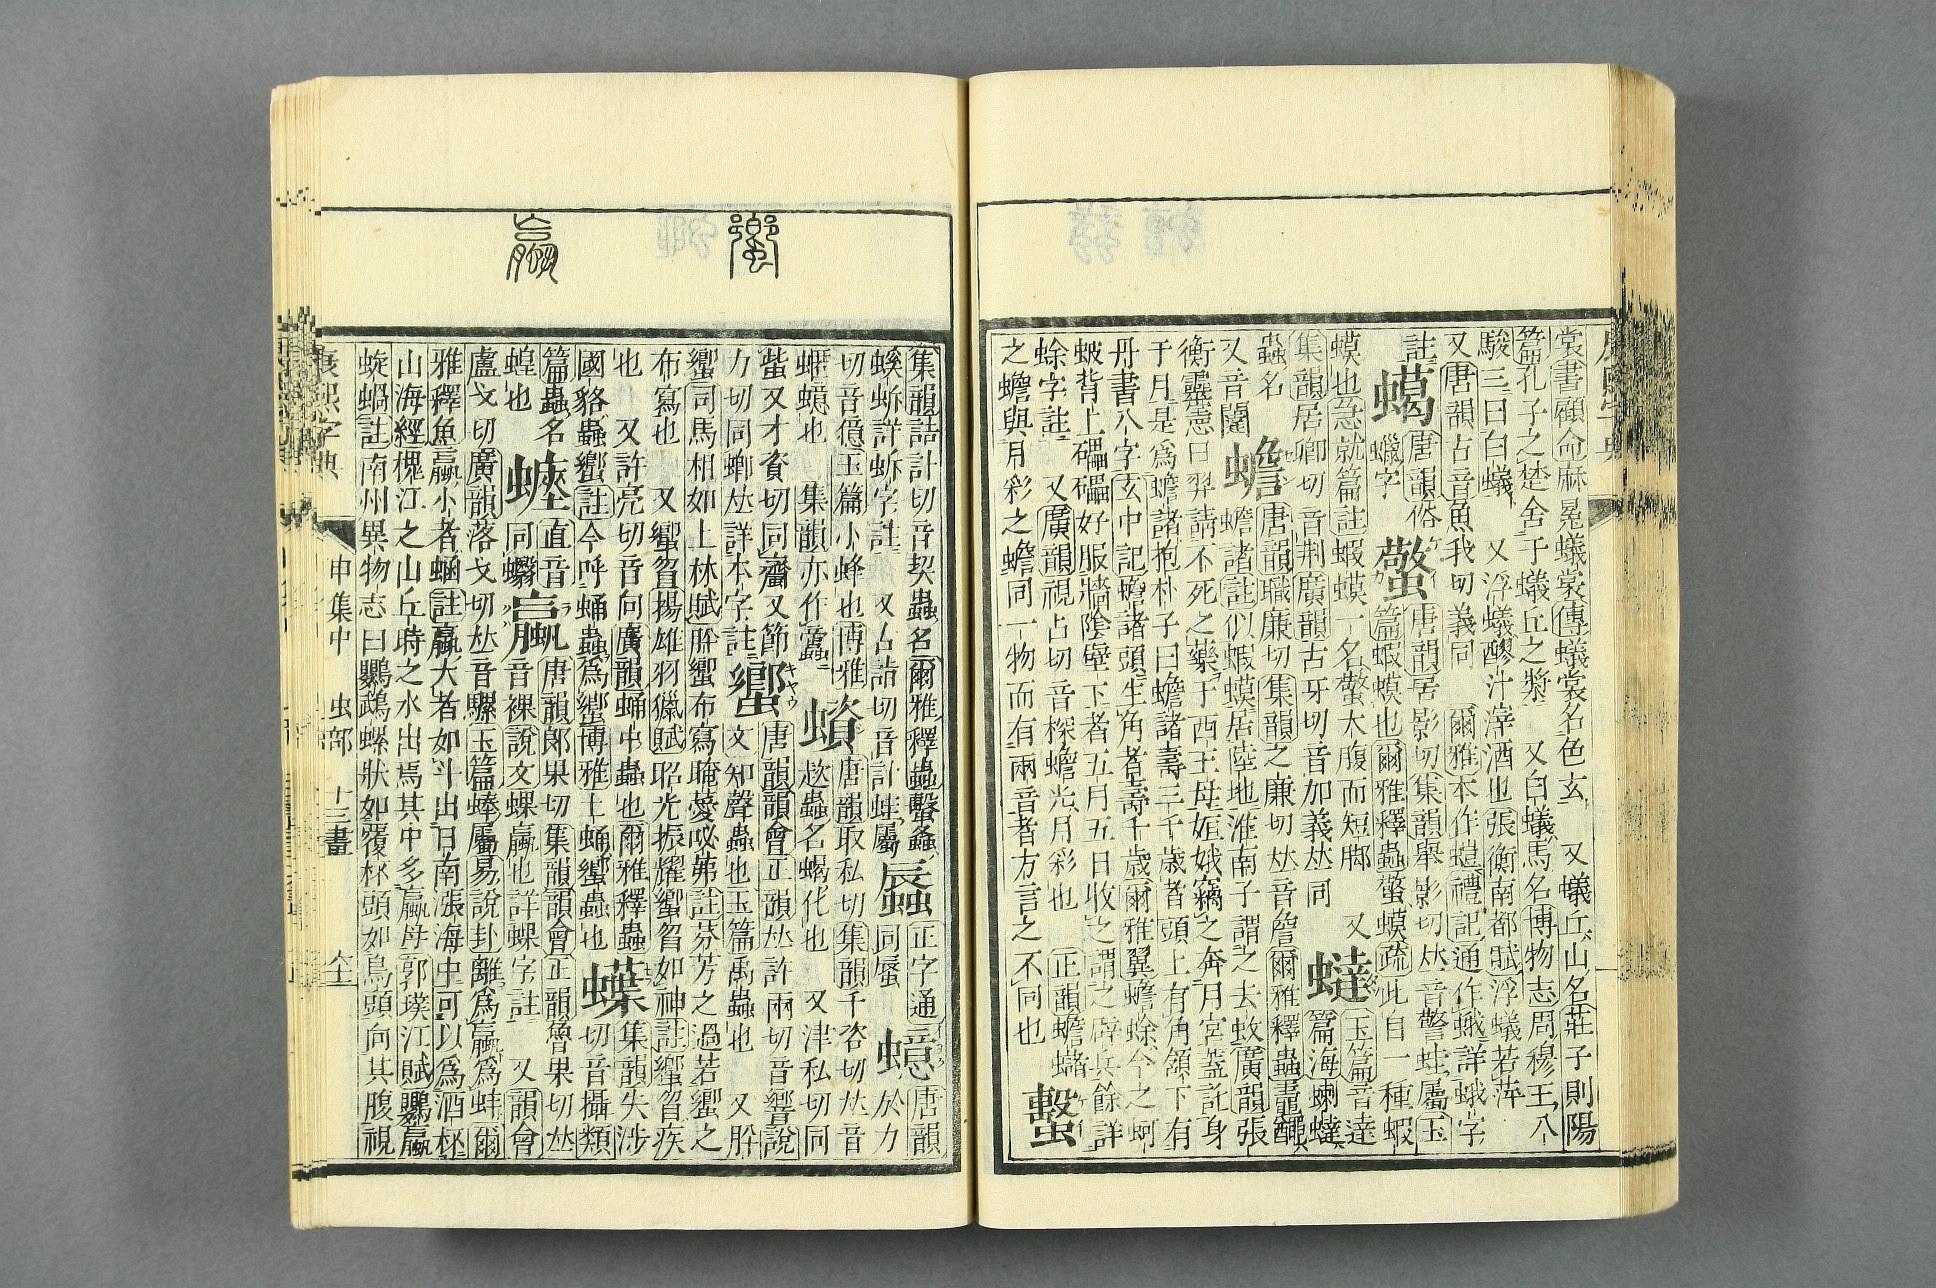 裳書顧命麻冕蟻裳傳蟻裳名色玄 又蟻丘山名莊子則陽
篇孔子之楚舍于蟻丘之漿 又白蟻馬名博物志周穆王八
駿三曰白蟻 又浮蟻醪汁滓酒也張衡南都賦浮蟻若萍
又唐韻古音魚我切義同 爾雅本作螘禮記通作蛾詳蛾字
註 唐韻俗 蟼 唐韻居影切集韻舉影切𠀤音警蛙屬玉
蠟字 篇蝦蟆也爾雅釋蟲蟼蟆疏此自一種蝦
蟆也急就篇註蝦蟆一名蟼大腹而短脚 又 蟽 玉篇音達
集韻居卿切音荆廣韻古牙切音加義𠀤同 篇海蝲蟽
蟲名 蟾 唐韻職廉切集韻之廉切𠀤音詹爾雅釋蟲鼁𪓰
又音闥 蟾諸註似蝦蟆居陸地淮南子謂之去蚁廣韻張
衡靈憲曰羿請不死之藥于西王母姮娥竊之奔月宮蓋託身
于月是爲蟾諸抱朴子曰蟾諸壽三千歲者頭上有角頷下有
丹書八字玄中記蟾諸頭生角者壽千歲爾雅翼蟾蜍今之蚵
蚾背上礧礧好服牆陰壁下者五月五日收之謂之辟兵餘詳
蜍字註 又廣韻視占切音棎蟾光月彩也 正韻蟾蠩
之蟾與月彩之蟾同一物而有兩音者方言之不同也 蟿
蠁
蠃
集韻詰計切音契蟲名爾雅釋蟲蟿螽 正字通 蟘 唐韻
螇蚸詳蚸字註 又古詣切音計蛙屬 蜃 同蜃 於力
切音億玉篇小蜂也博雅 蠀 唐韻取私切集韻千咨切𠀤音
蟔蟘也 集韻亦作 趑蟲名蝎化也 又津私切同
蚩又才資切同齎又節 キヤウ 唐韻韻會正韻𠀤許兩切音響說
力切同蝍𠀤詳本字註 蠁 文知聲蟲也玉篇禹蟲也 又肸
蠁司馬相如上林賦肸蠁布寫晻薆咇茀註芬芳之過若蠁之
布寫也 又蠁曶揚雄羽獵賦昭光振耀蠁曶如神註蠁曶疾
也 又許亮切音向廣韻蛹中蟲也爾雅釋蟲 蠂 集韻失涉
國貉蟲蠁註今呼蛹蟲爲蠁博雅土蛹蠁蟲也 切音攝類
篇蟲名 直音 蠃 唐韻郎果切集韻韻會正韻魯果切𠀤
蝗也 同螽 音裸說文蜾蠃也詳蜾字註 又韻會
盧戈切廣韻落戈切𠀤音騾玉篇蜯屬易說卦離爲蠃爲蚌爾
雅釋魚蠃小者蜬註蠃大者如斗出日南漲海中可以爲酒杯
山海經槐江之山丘時之水出焉其中多蠃母郭璞江賦鸚蠃
蜁蝸註南州異物志曰鸚鵡螺狀如覆杯頭如鳥頭向其腹視
康熙字典 申集中 虫部 十三畫